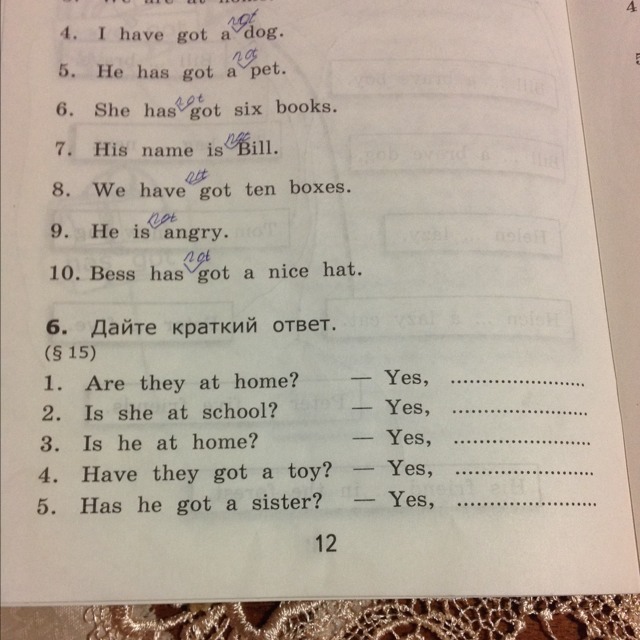 4. I have got a not dog.
5. He has got a not pet.
6. She has not got six books.
7. His name is not Bill.
8. We have not got ten boxes.
9. He is not angry.
10. Bess has not got a nice hat.
6. Дайте краткий ответ.
(§ 15)
1. Are they at home? — Yes, ........................
2. Is she at school? — Yes, ........................
3. Is he at home? — Yes, ........................
4. Have they got a toy? — Yes, ........................
5. Has he got a sister? — Yes, ........................
12
4